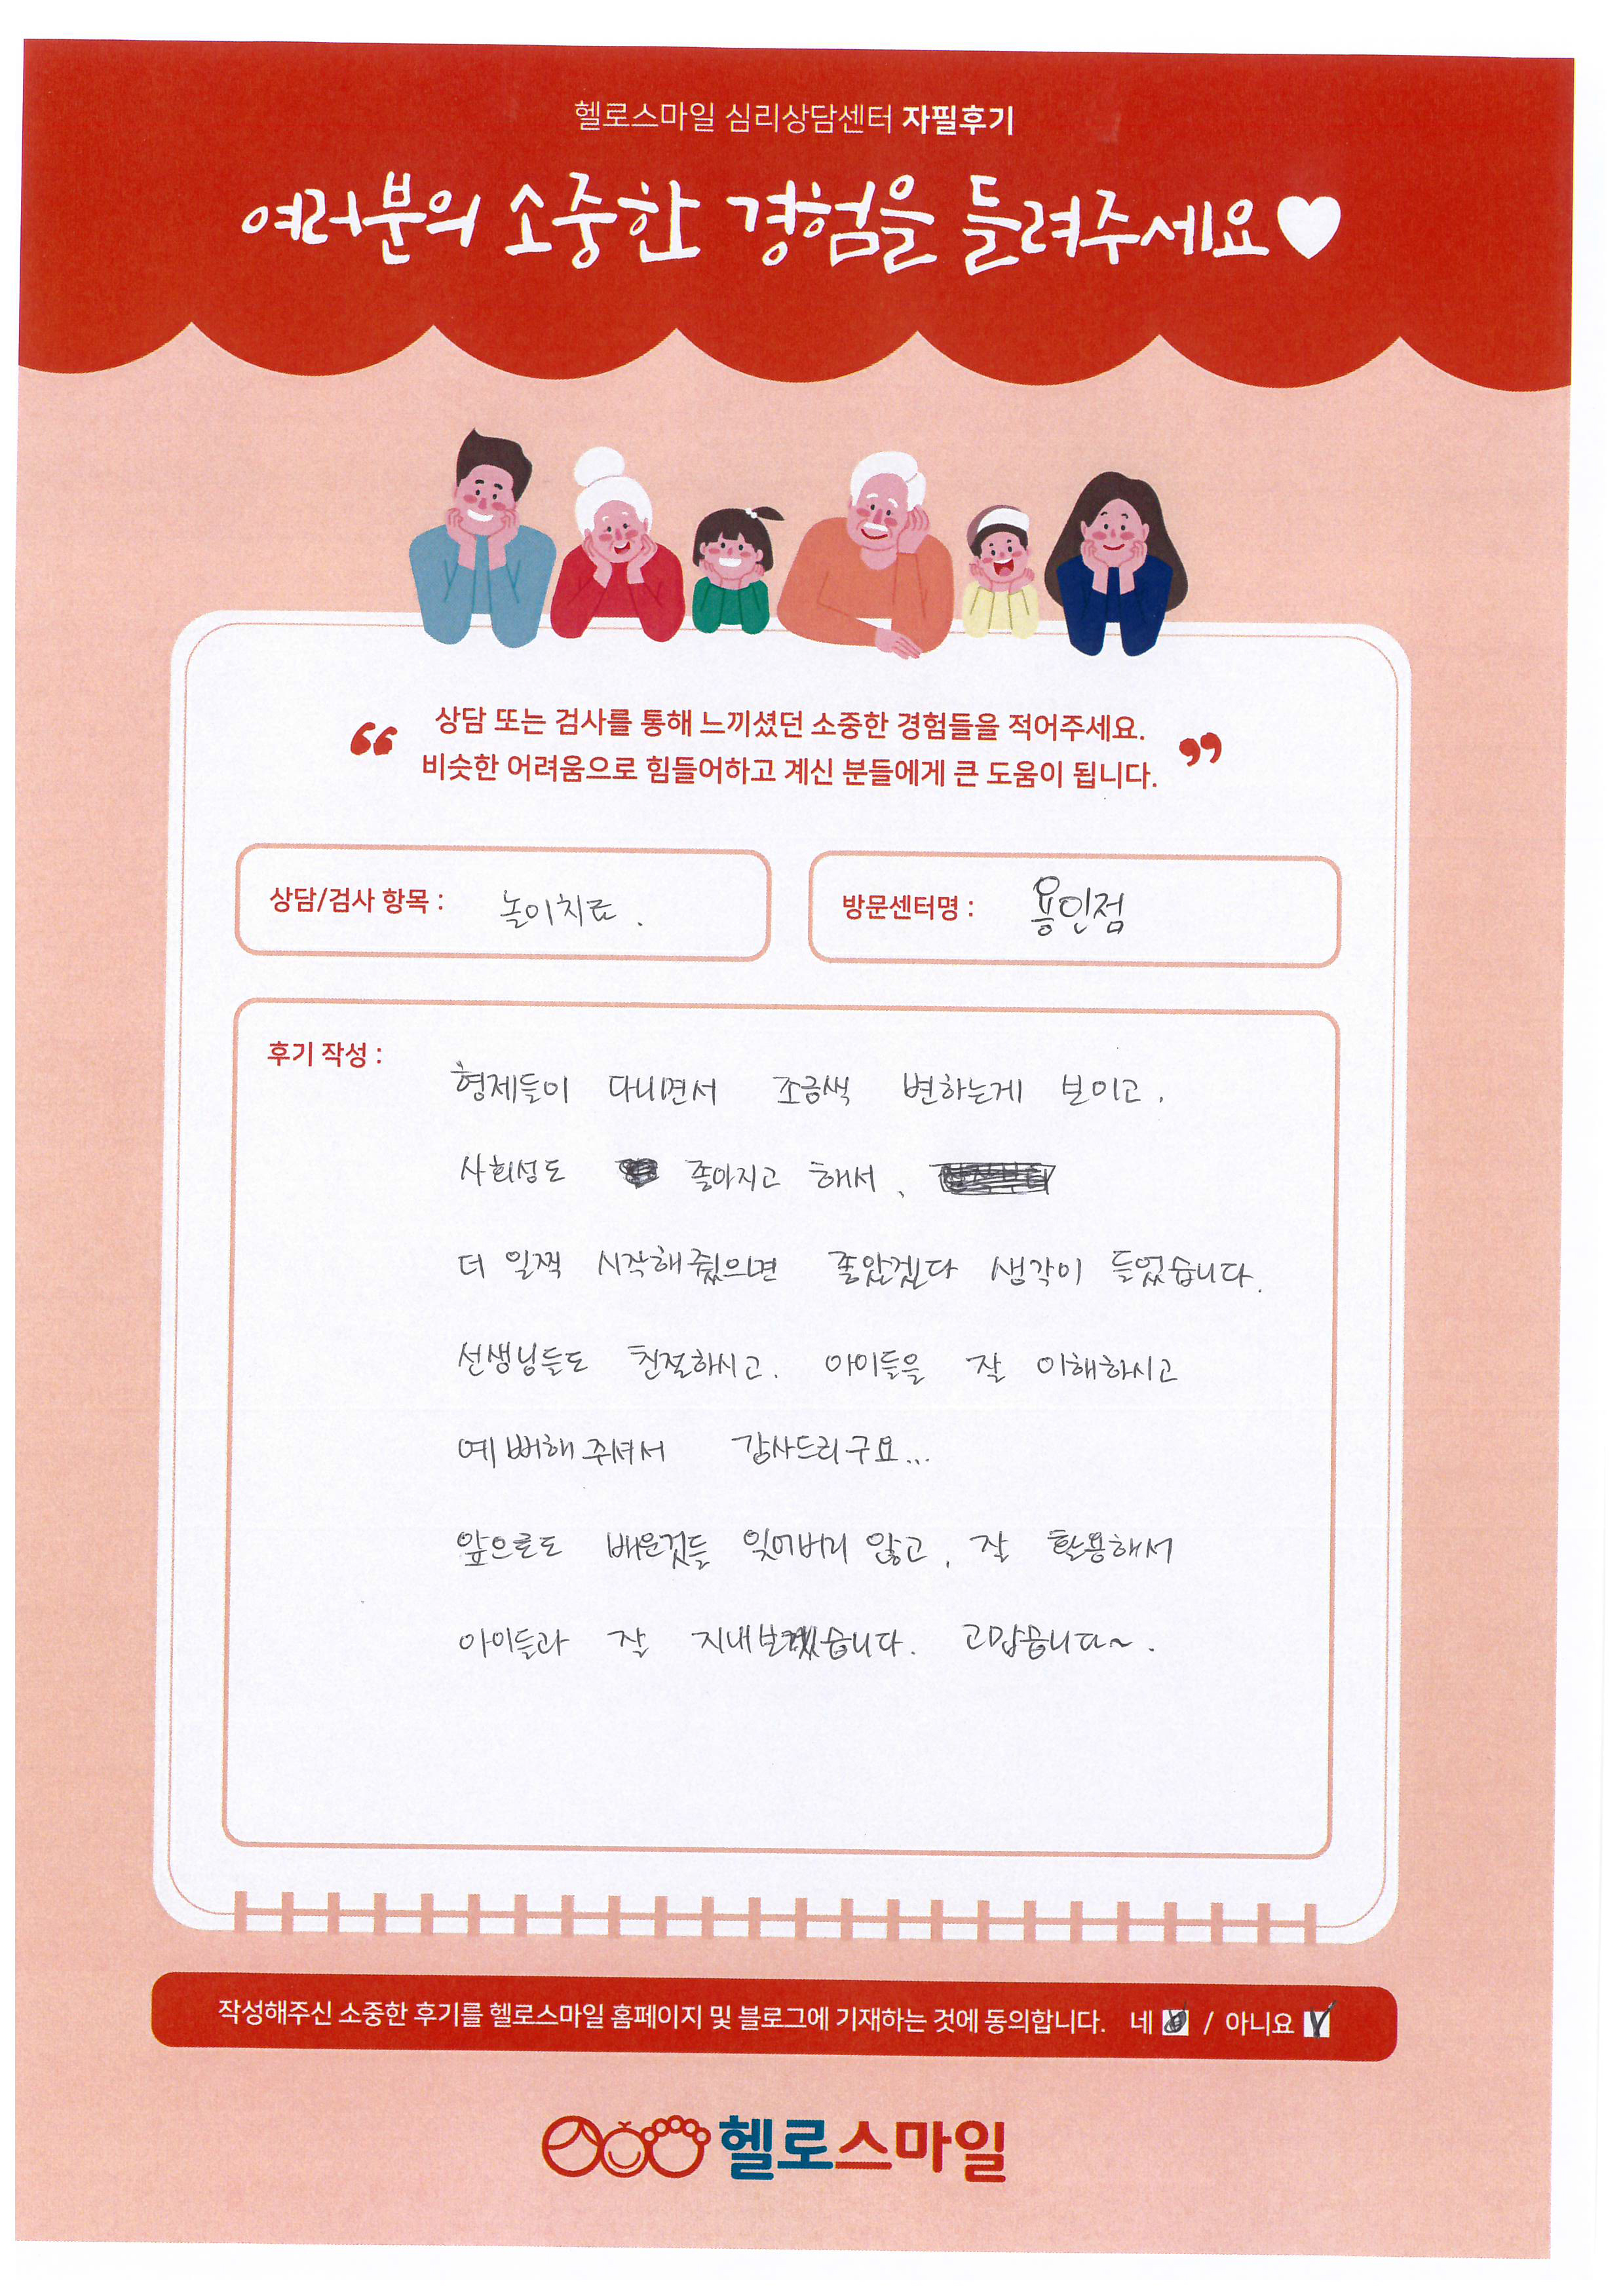 헬로스마일 심리상담센터 자필후기
여러분의 소중한 경험을 들려주세요
상담 또는 검사를 통해 느끼셨던 소중한 경험들을 적어주세요.
비슷한 어려움으로 힘들어하고 계신 분들에게 큰 도움이 됩니다.
상담/검사 항목 : 놀이치료.
방문센터명 : 용인점
후기 작성 :
형제들이 다니면서 조금씩 변하는게 보이고.
사회성도 좋아지고 해서,
더 일찍 시작해줬으면 좋았겠다 생각이 들었습니다.
선생님들도 친절하시고. 아이들을 잘 이해하시고
예뻐해주셔서 감사드리구요...
앞으로도 배운것들 잊어버리 않고, 잘 활용해서
아이들과 잘 지내보겠습니다. 고맙습니다~.
작성해주신 소중한 후기를 헬로스마일 홈페이지 및 블로그에 기재하는 것에 동의합니다. 네 / 아니요
헬로스마일